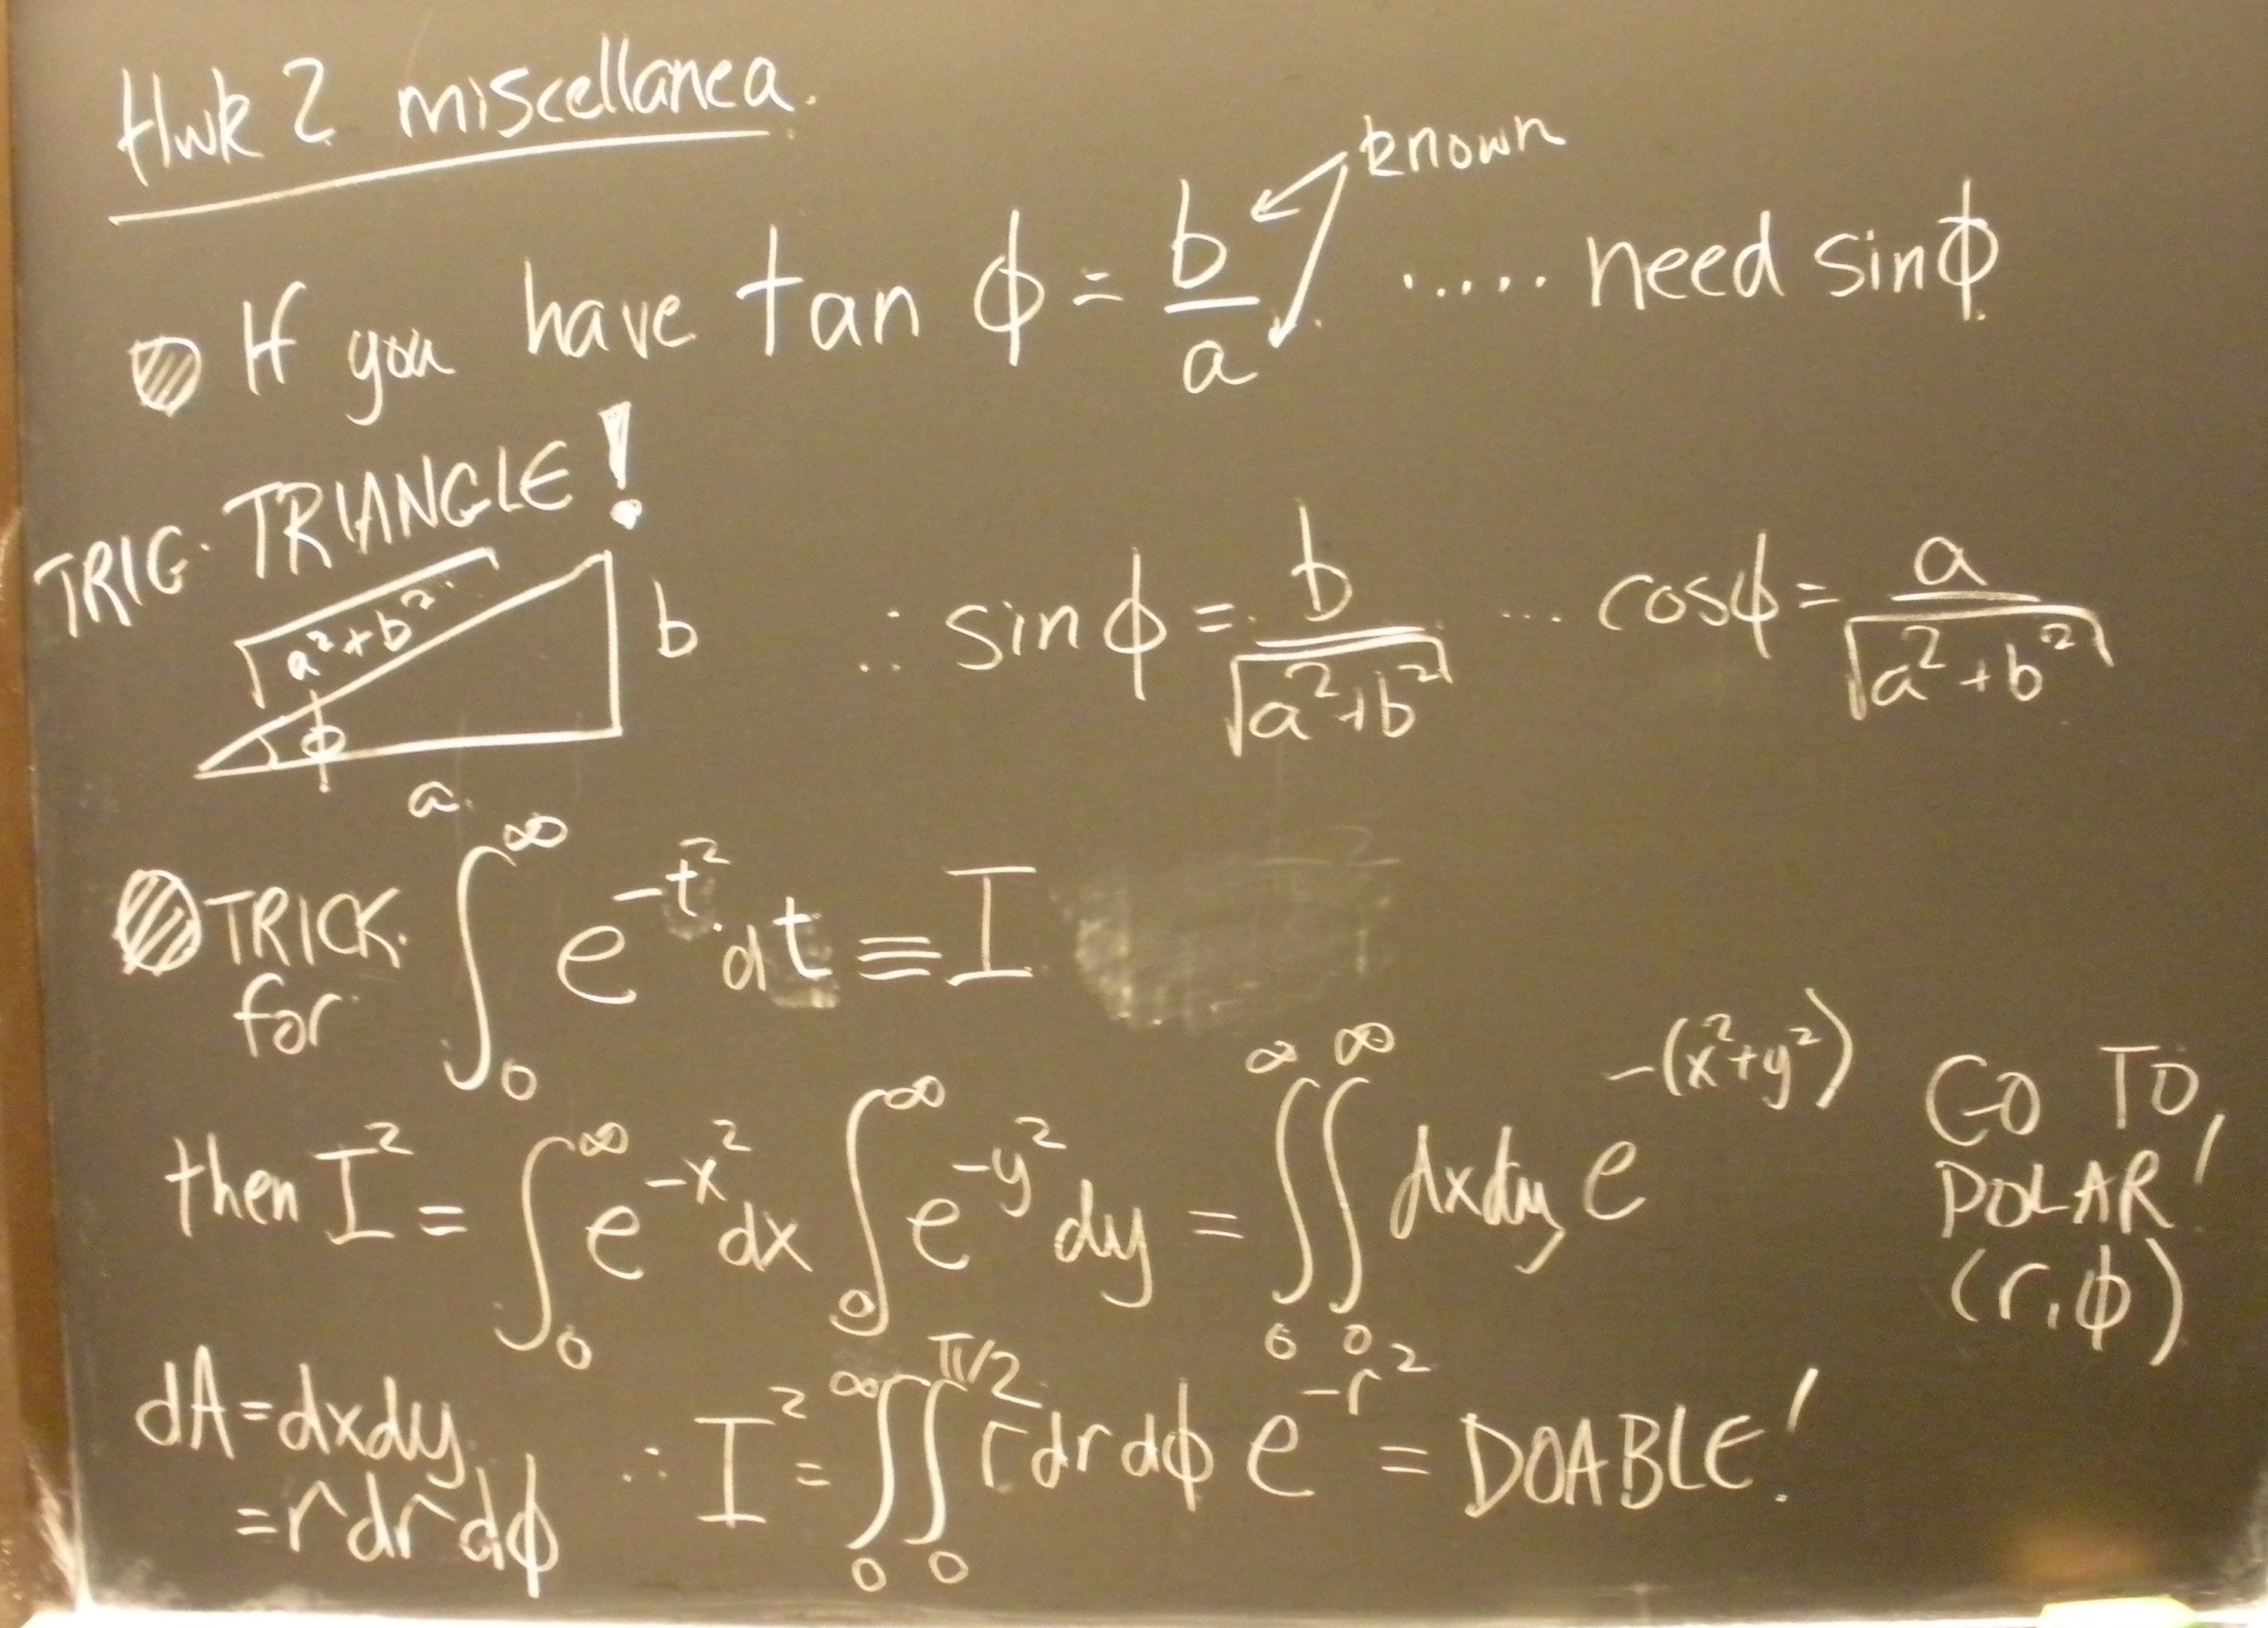 Hwk 2 miscellanea.
known
If you have tan ϕ = b/a ..... need sinϕ
TRIG. TRIANGLE!
√(a²+b²) b
ϕ
a
∴ sin ϕ = b/√(a²+b²) ... cosϕ = a/√(a²+b²)
TRICK for ∫₀^∞ e^(-t²) dt ≡ I
then I² = ∫₀^∞ e^(-x²) dx ∫₀^∞ e^(-y²) dy = ∫₀^∞ ∫₀^∞ dxdy e^(-(x²+y²))
GO TO
POLAR!
(r, ϕ)
dA = dxdy
= r dr dϕ
∴ I² = ∫₀^∞ ∫₀^(π/2) r dr dϕ e^(-r²) = DOABLE!